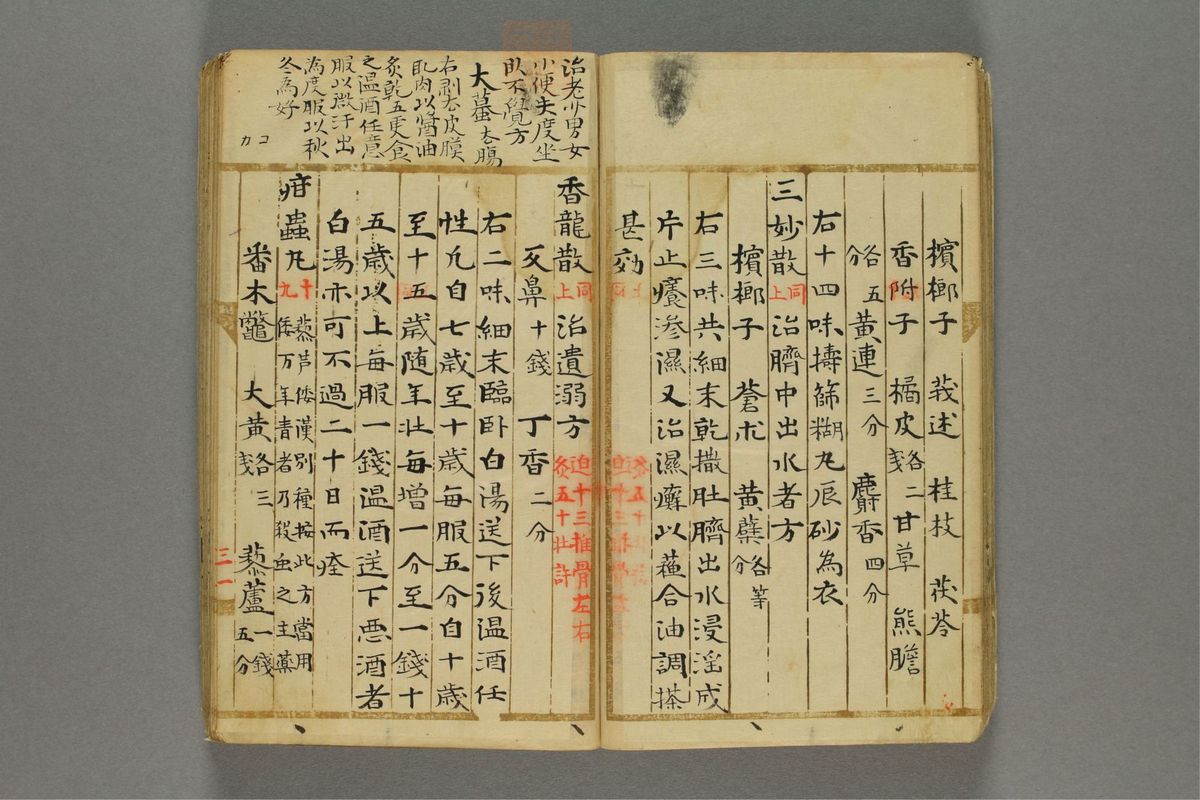 檳榔子 莪述 桂枝 茯苓
香附子 橘皮各二錢 甘草 熊膽
各五分 黄連三分 麝香四分
右十四味擣篩糊丸辰砂為衣
三妙散 同上 治臍中出水者方
檳榔子 蒼朮 黄蘗各等分
右三味共細末乾撒肚臍出水浸淫成
片止癢滲濕又治濕癬以蘓合油調搽
甚効
治老少男女
小便失度坐
臥不覺方
大蟇去腸
右剥去皮膜
肌肉以醬油
炙乾五更食
之温酒任意
服以微汗出
為度服以秋
冬為好
カコ
香龍散 同上 治遺溺方
迫十三推骨左右
灸五十壮許
反鼻十錢 丁香二分
右二味細末臨卧白湯送下後温酒任
性凢自七歳至十歳毎服五分自十歳
至十五歳随年壮毎増一分至一錢十
五歳以上毎服一錢温酒送下悪酒者
白湯亦可不過二十日而痊
疳蟲丸 十九 藜芦倭漢別種按此方當用
倭万年青者乃殺虫之主薬
番木鼈 大黄各三錢 藜蘆一錢五分
三一